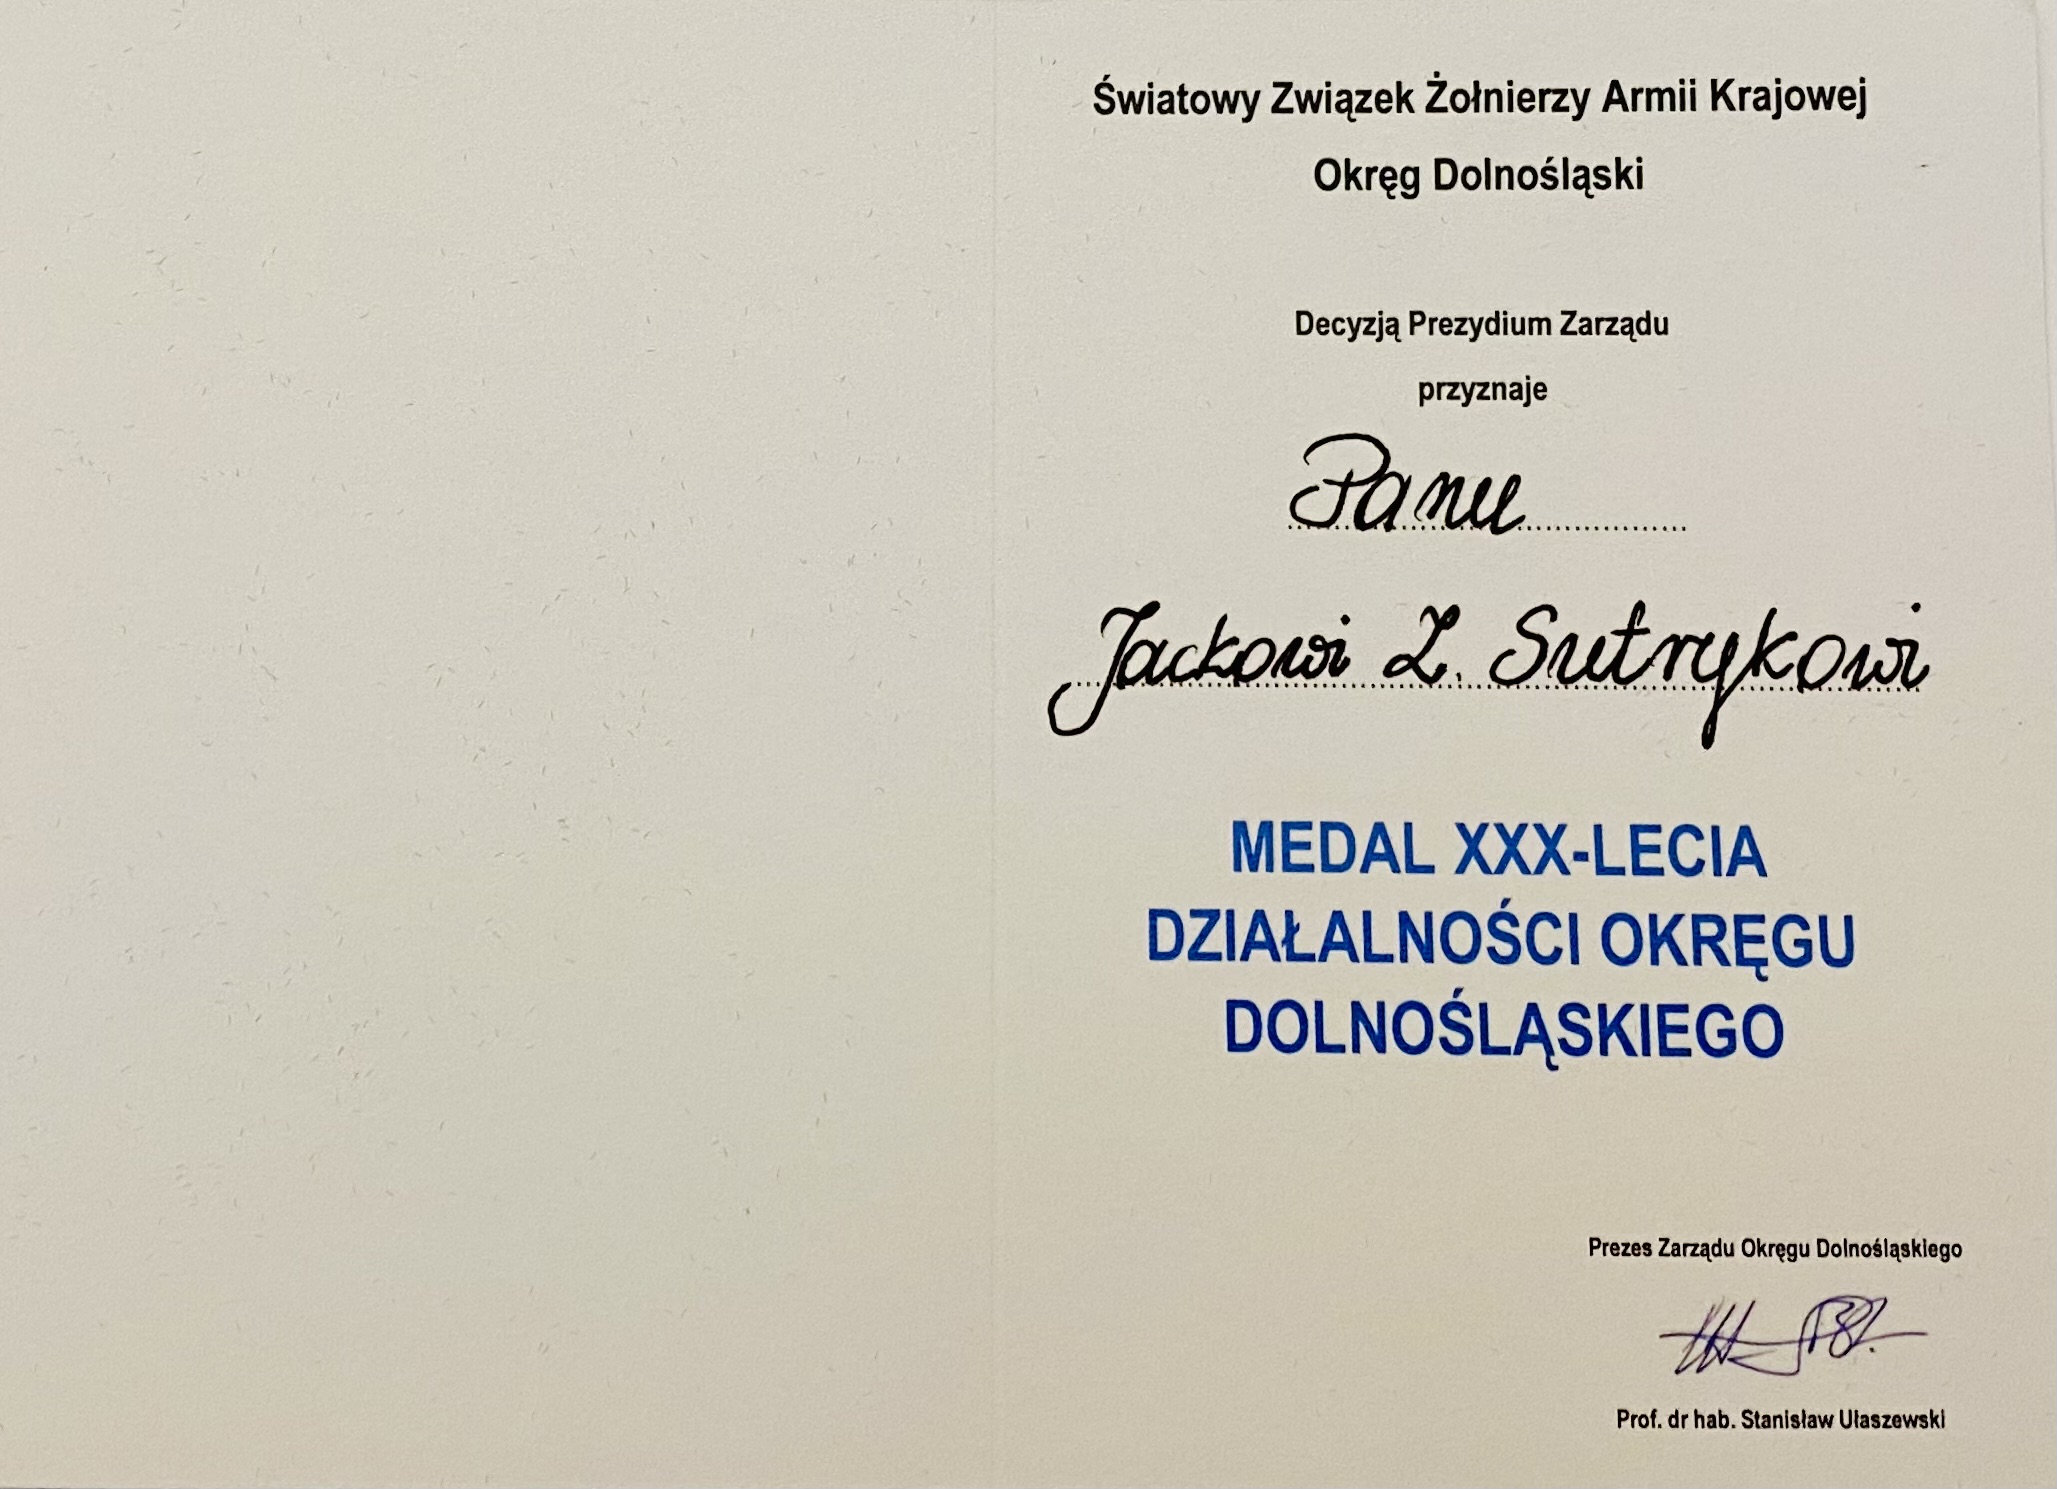 Światowy Związek Żołnierzy Armii Krajowej
Okręg Dolnośląski
Decyzją Prezydium Zarządu
przyznaje
Panu
Jackowi Z. Sutrykowi
MEDAL XXX-LECIA
DZIAŁALNOŚCI OKRĘGU
DOLNOŚLĄSKIEGO
Prezes Zarządu Okręgu Dolnośląskiego
Prof. dr hab. Stanisław Ułaszewski